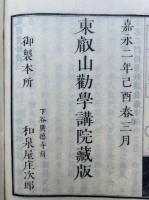 嘉永二年己酉春三月
東叡山勸學講院藏版
御製本所
下谷廣徳寺前
和泉屋庄次郎